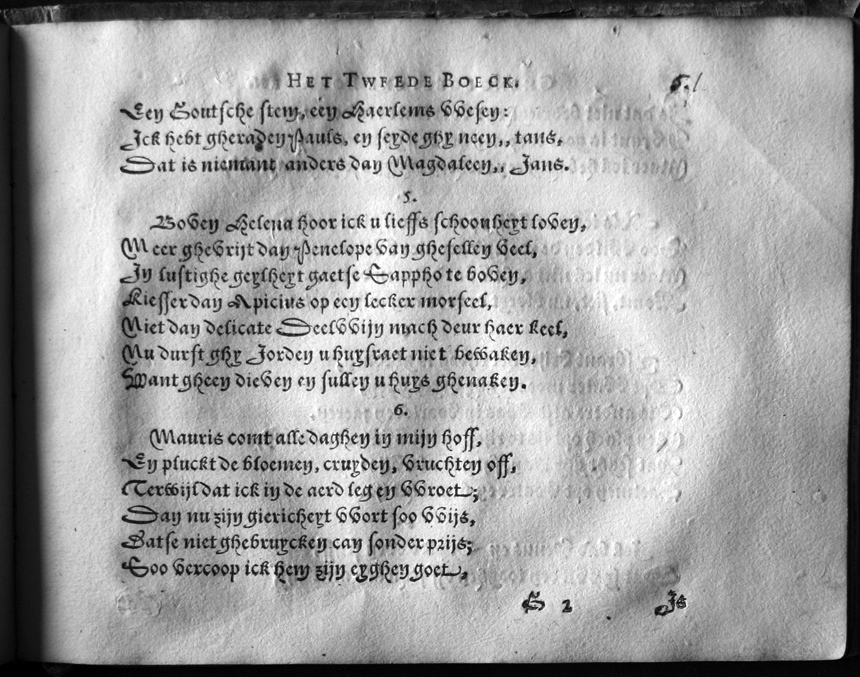 HET TWEEDE BOECK. 51
Een Goutsche stem, een Haerlems wesen:
Ick hebt gheraden Pauls, en seyde ghy neen,, tans,
Dat is niemant anders dan Magdaleen,, Jans.
5.
Boven Helena hoor ick u lieffs schoonheyt loven,
Meer ghevrijt dan Penelope van ghesellen veel,
In lustighe geylheyt gaetse Sappho te boven,
Kiesser dan Apicius op een lecker morseel,
Niet dan delicate Deelwijn mach deur haer keel,
Nu durft ghy Jorden u huysraet niet bewaken,
Want gheen dieven en sullen u huys ghenaken.
6.
Mauris comt alle daghen in mijn hoff,
En pluckt de bloemen, cruyden, vruchten off,
Terwijl dat ick in de aerd leg en wroet;
Dan nu zijn giericheyt wort soo wijs,
Datse niet ghebruycken can sonder prijs;
Soo vercoop ick hem zijn eyghen goet,
G 2 Is